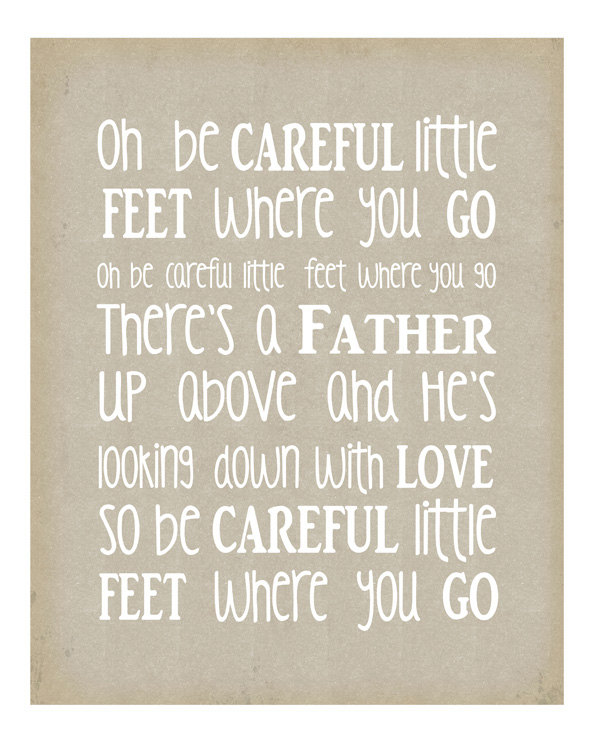 Oh be CAREFUL little
FEET where you GO
oh be careful little feet where you go
There's a FATHER
UP above and He's
looking down with LOVE
SO be CAREFUL little
FEET where you GO